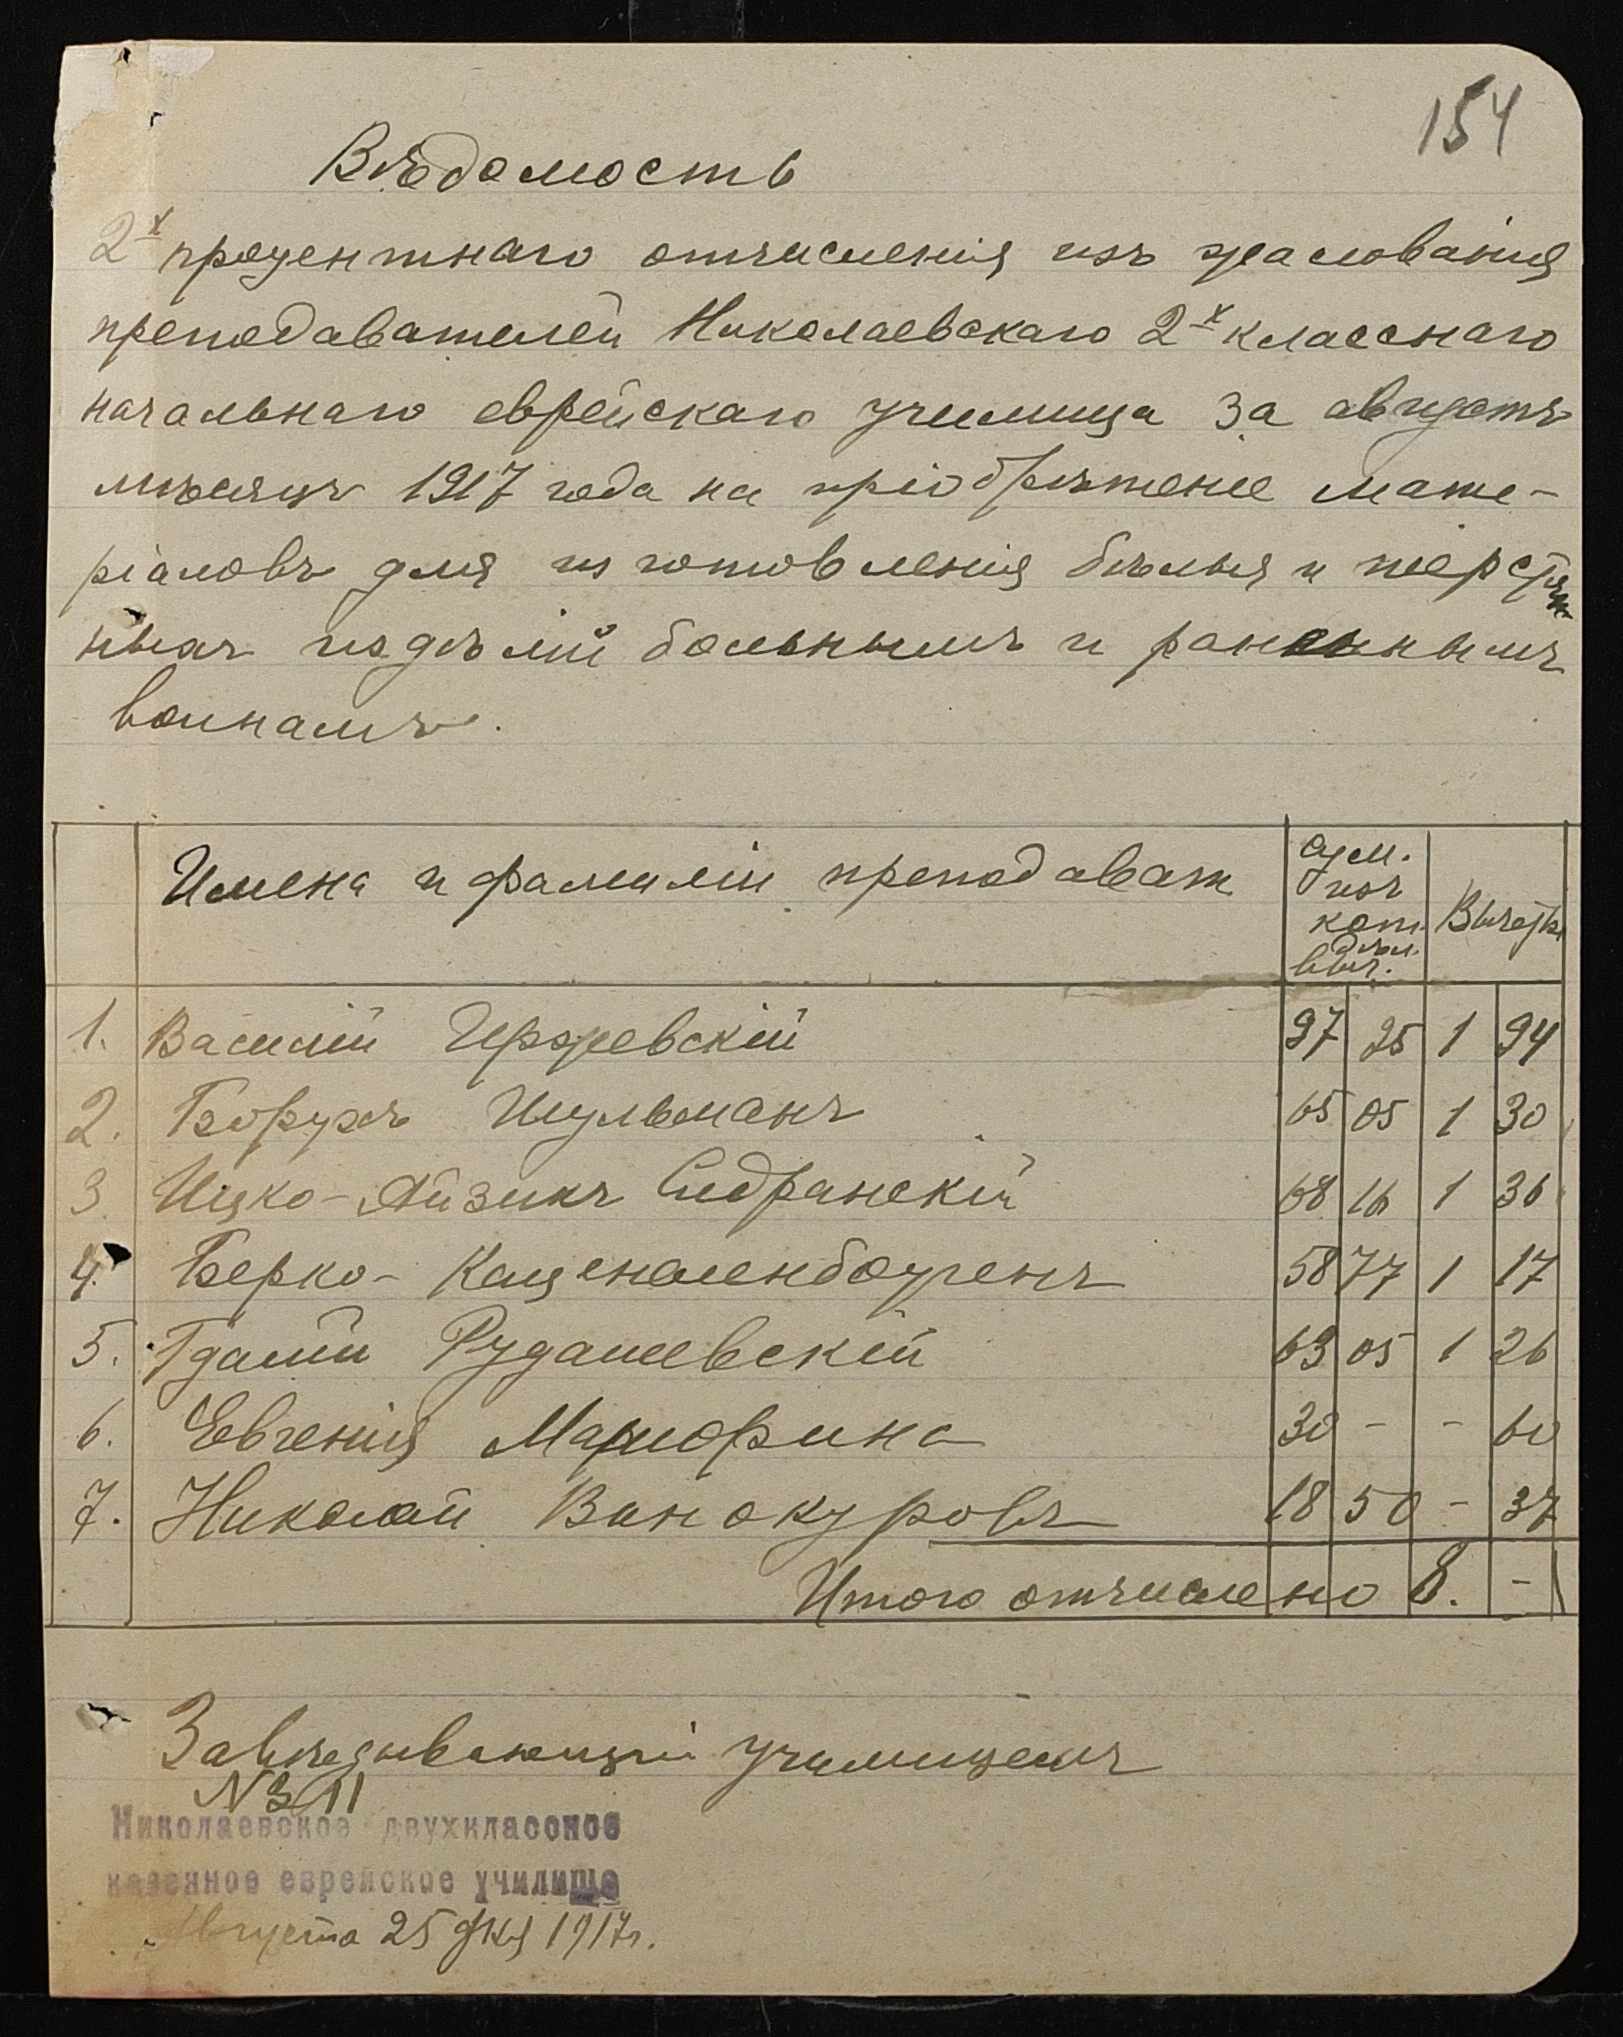 154
Вѣдомость
2х процентнаго отчисленія изъ жалованія
преподавателей Николаевскаго 2х класснаго
начальнаго еврейскаго училища за августъ
мѣсяцъ 1917 года на пріобрѣтеніе мате-
ріаловъ для изготовленія бѣлья и шерстян
ныхъ издѣлій больнымъ и раненнымъ
воинамъ.
Имена и фамиліи преподават
сум. изъ кот. дѣл. выч.
Вычеты
1. Василій Иржевскій 97 25 1 94
2. Борухъ Шульманъ 65 05 1 30
3 Ицко-Айзикъ Сидранскій 68 16 1 36
4. Берко- Каценеленбогенъ 58 77 1 17
5. Гдалій Рудашевскій 63 05 1 26
6. Евгенія 30 - - 60
7. Николай Винокуровъ 18 50 - 37
Итого отчислено 8. -
Завѣдывающій училищемъ
N 311
Николаевское двухклассное
казенное еврейское училище
Августа 25 дня 1917г.